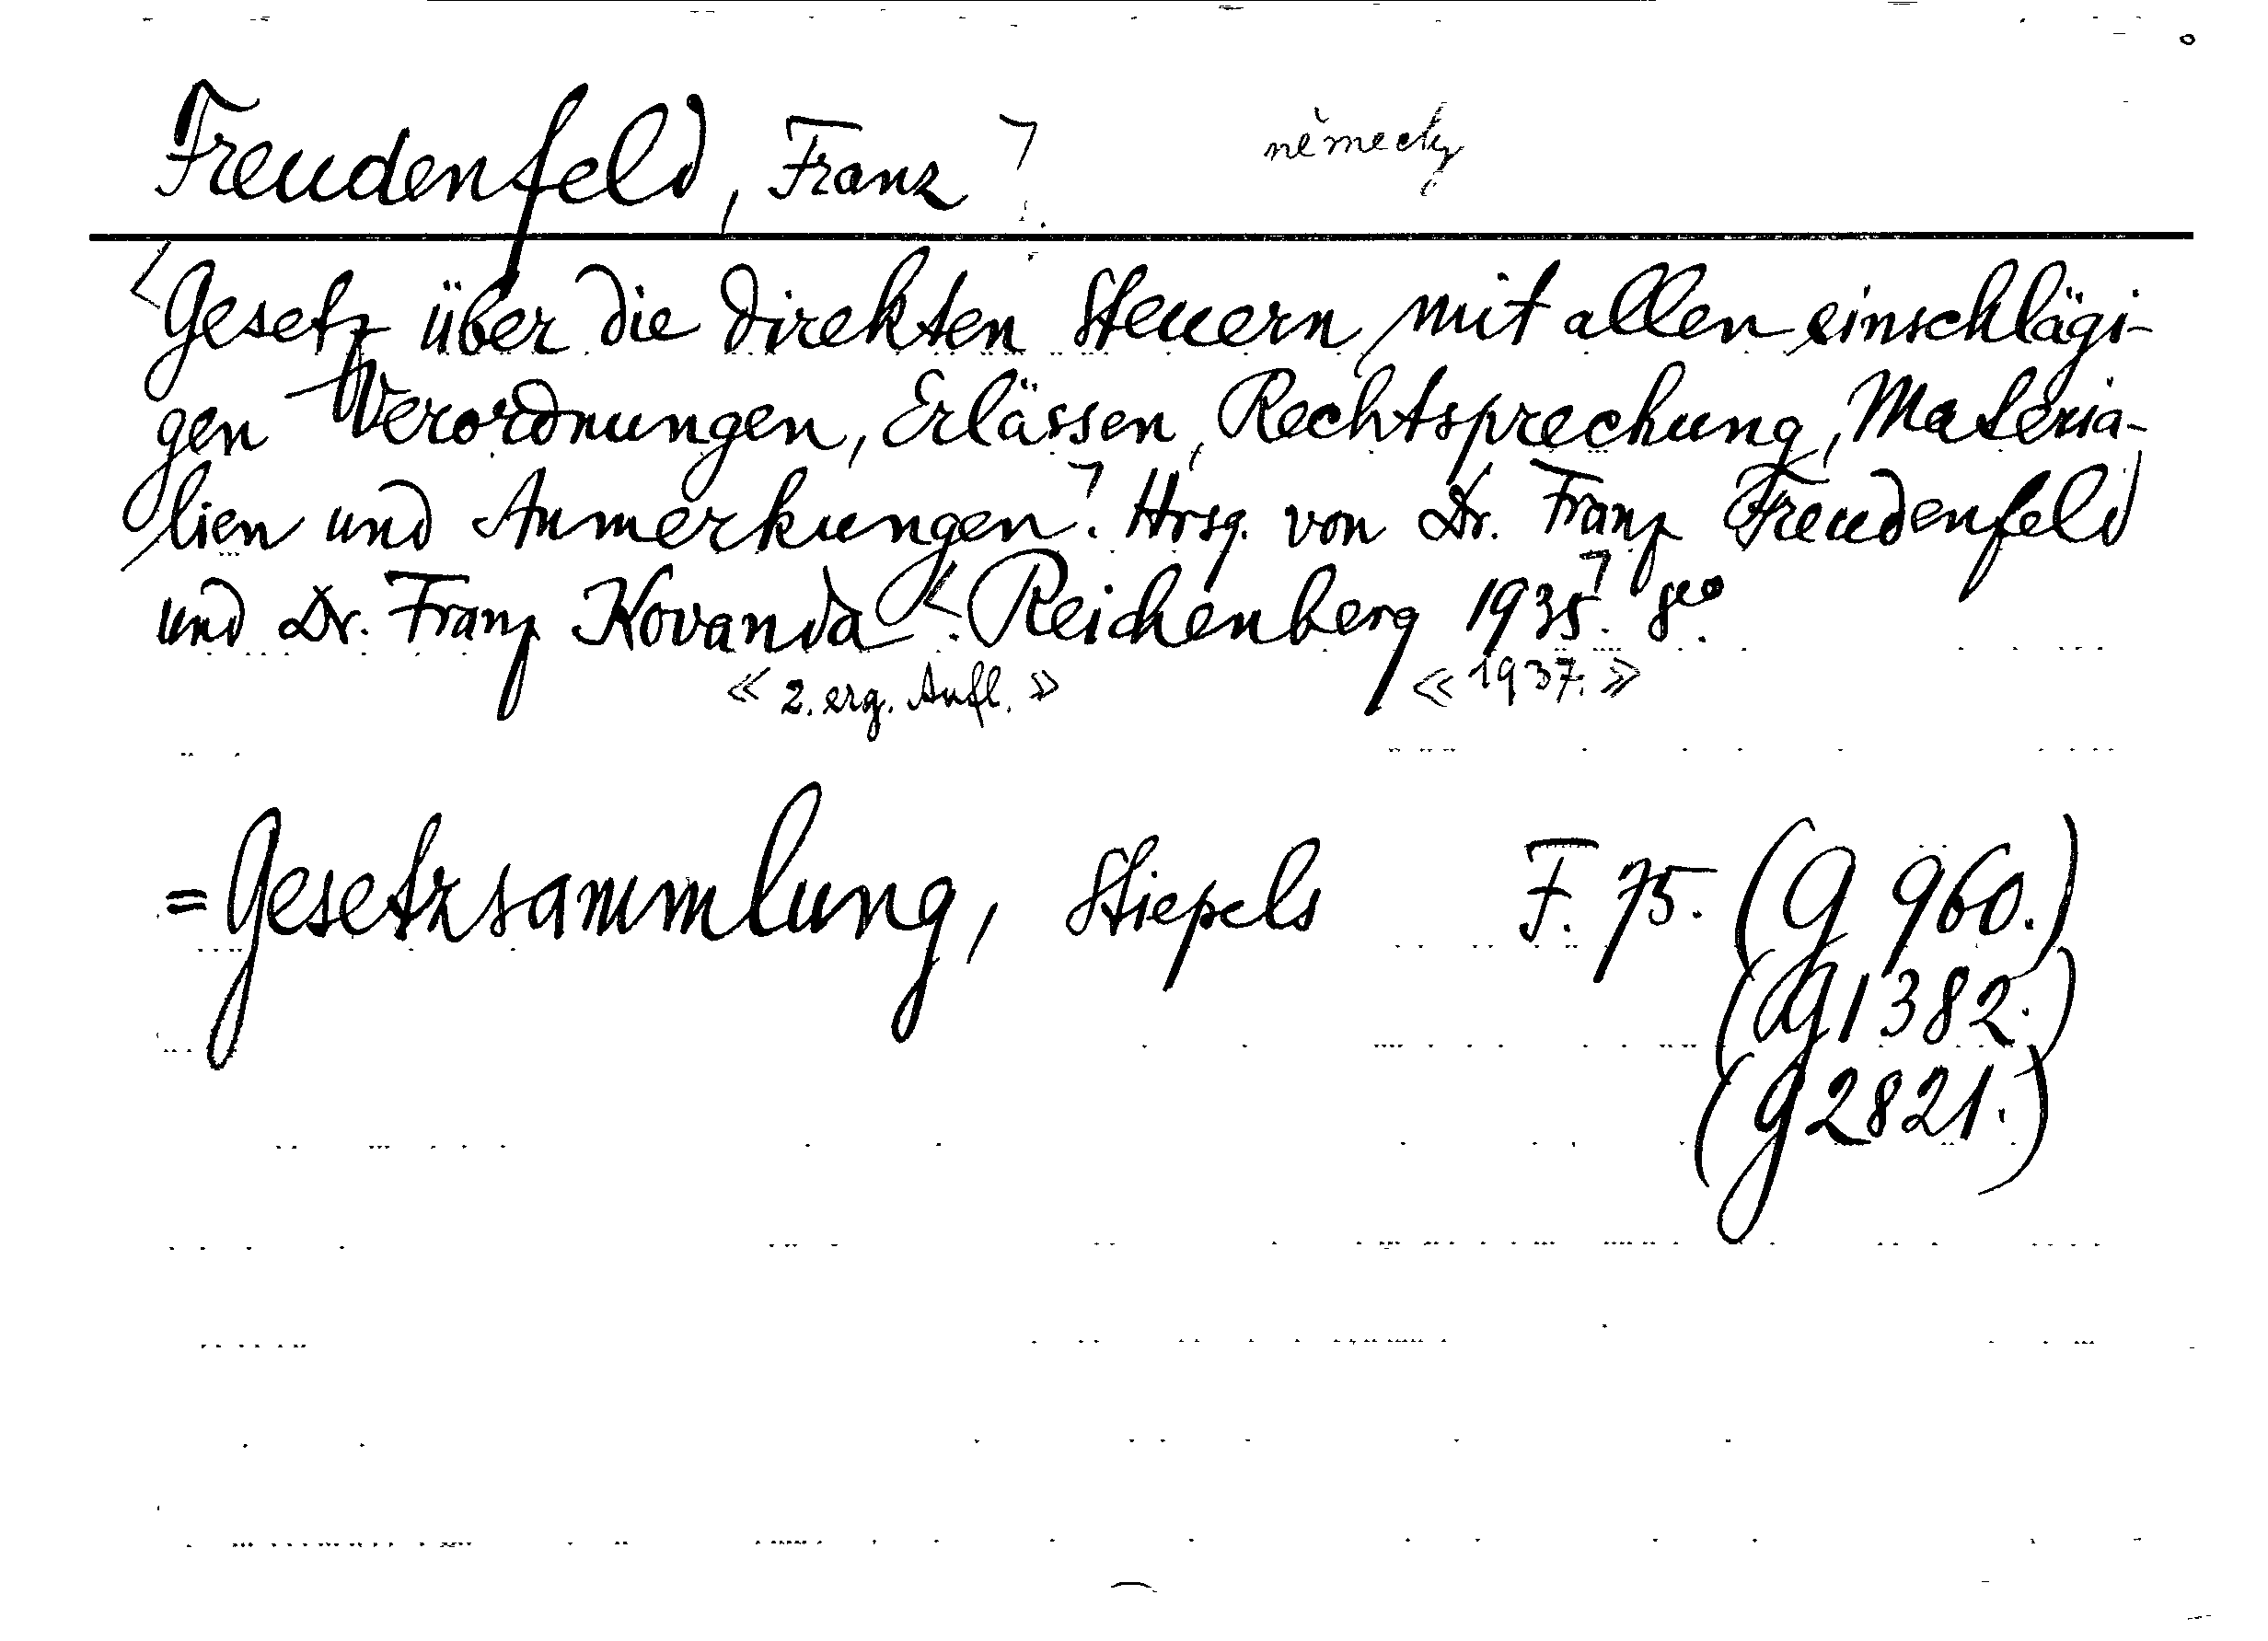 Freudenfeld, Franz německy
Gesetz über die direkten Steuern mit allen einschlägi-
gen Verordnungen, Erlässen, Rechtsprechung, Materia-
lien und Anmerkungen. Hrsg. von Dr. Franz Freudenfeld
und Dr. Franz Kovanda. Reichenberg 1935. 8°.
« 2. erg. Aufl. » « 1937. »
= Gesetzsammlung, Stiepels F. 75. (G 960.)
(G 1382.)
(G 2821.)